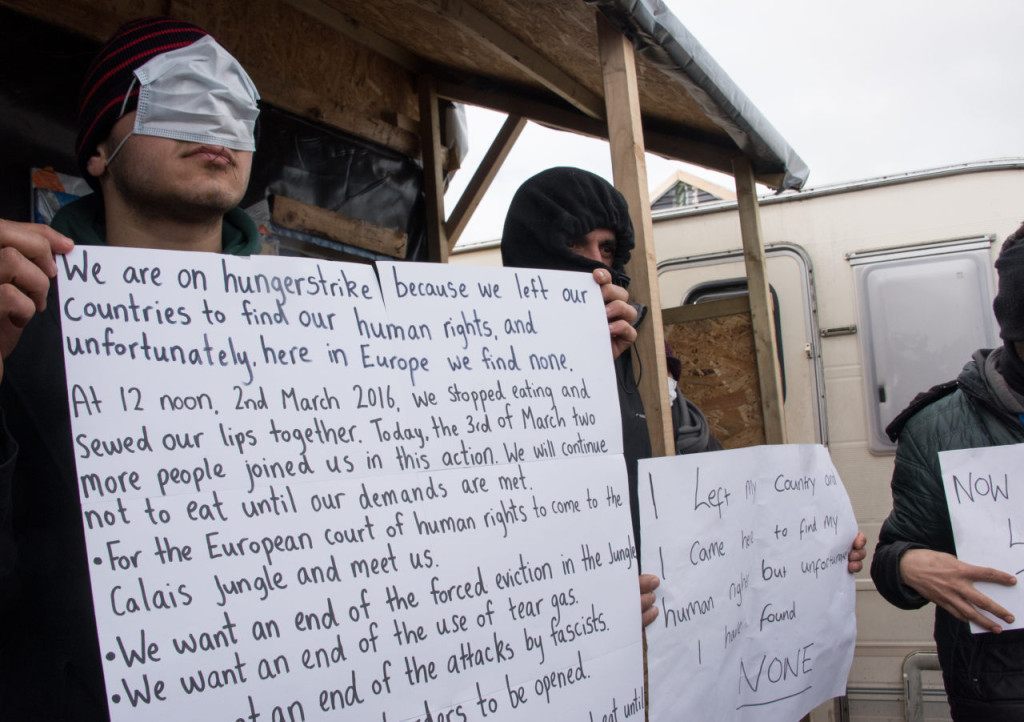 We are on hungerstrike because we left our
Countries to find our human rights, and
unfortunately, here in Europe we find none.
At 12 noon, 2nd March 2016, we stopped eating and
sewed our lips together. Today, the 3rd of March two
more people joined us in this action. We will continue
not to eat until our demands are met.
• For the European court of human rights to come to the
Calais Jungle and meet us.
• We want an end of the forced eviction in the Jungle
• We want an end of the use of tear gas.
an end of the attacks by fascists.
to be opened.
eat until
I Left my Country and
I came here to find my
human rights but unfortunate
I have found
NONE
NOW
L